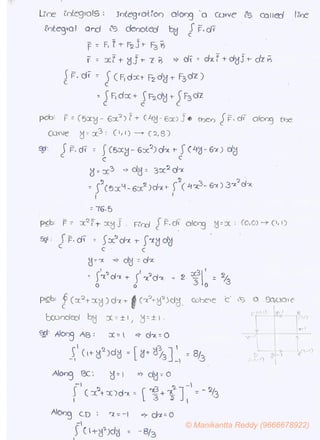 Line integrals : Integration along a curve is called line
integral and is denoted by ∫ F̄.dr̄
F̄ = F₁ ī + F₂ j̄ + F₃ n̄
r̄ = x ī + y j̄ + z n̄ ⇒ dr̄ = dx ī + dy j̄ + dz n̄
∫_C F̄.dr̄ = ∫_C (F₁dx + F₂dy + F₃dz)
= ∫_C F₁dx + ∫F₂dy + ∫F₃dz
pcb: F̄ = (5xy - 6x²) ī + (4y - 6x) j̄ then ∫_C F̄.dr̄ along the
curve y = x³ : (1,1) → (2,8)
sol: ∫_C F̄.dr̄ = ∫_C (5xy - 6x²) dx + ∫_C (4y - 6x) dy
y = x³ ⇒ dy = 3x² dx
= ∫₁² (5x⁴ - 6x²) dx + ∫₁² (4x³ - 6x) 3x² dx
= 76.5
pcb: F̄ = x² ī + xy j̄. Find ∫ F̄.dr̄ along y=x : (0,0) → (1,1)
sol: ∫_C F̄.dr̄ = ∫_C x² dx + ∫_C xy dy
y = x ⇒ dy = dx
= ∫₀¹ x² dx + ∫₀¹ x² dx = 2 x³/3 |₀¹ = 2/3
pcb: ∮ (x² + xy) dx + (x² + y²) dy, where 'c' is a square
bounded by x = ±1, y = ±1.
sol: Along AB : x = 1 ⇒ dx = 0
∫₋₁¹ (1 + y²) dy = [y + y³/3]₋₁¹ = 8/3
Along BC : y = 1 ⇒ dy = 0
∫₁⁻¹ (x² + x) dx = [x³/3 + x²/2]₁⁻¹ = -2/3
Along CD : x = -1 ⇒ dx = 0
∫₁⁻¹ (1 + y²) dy = -8/3
© Manikantta Reddy (9666678922)